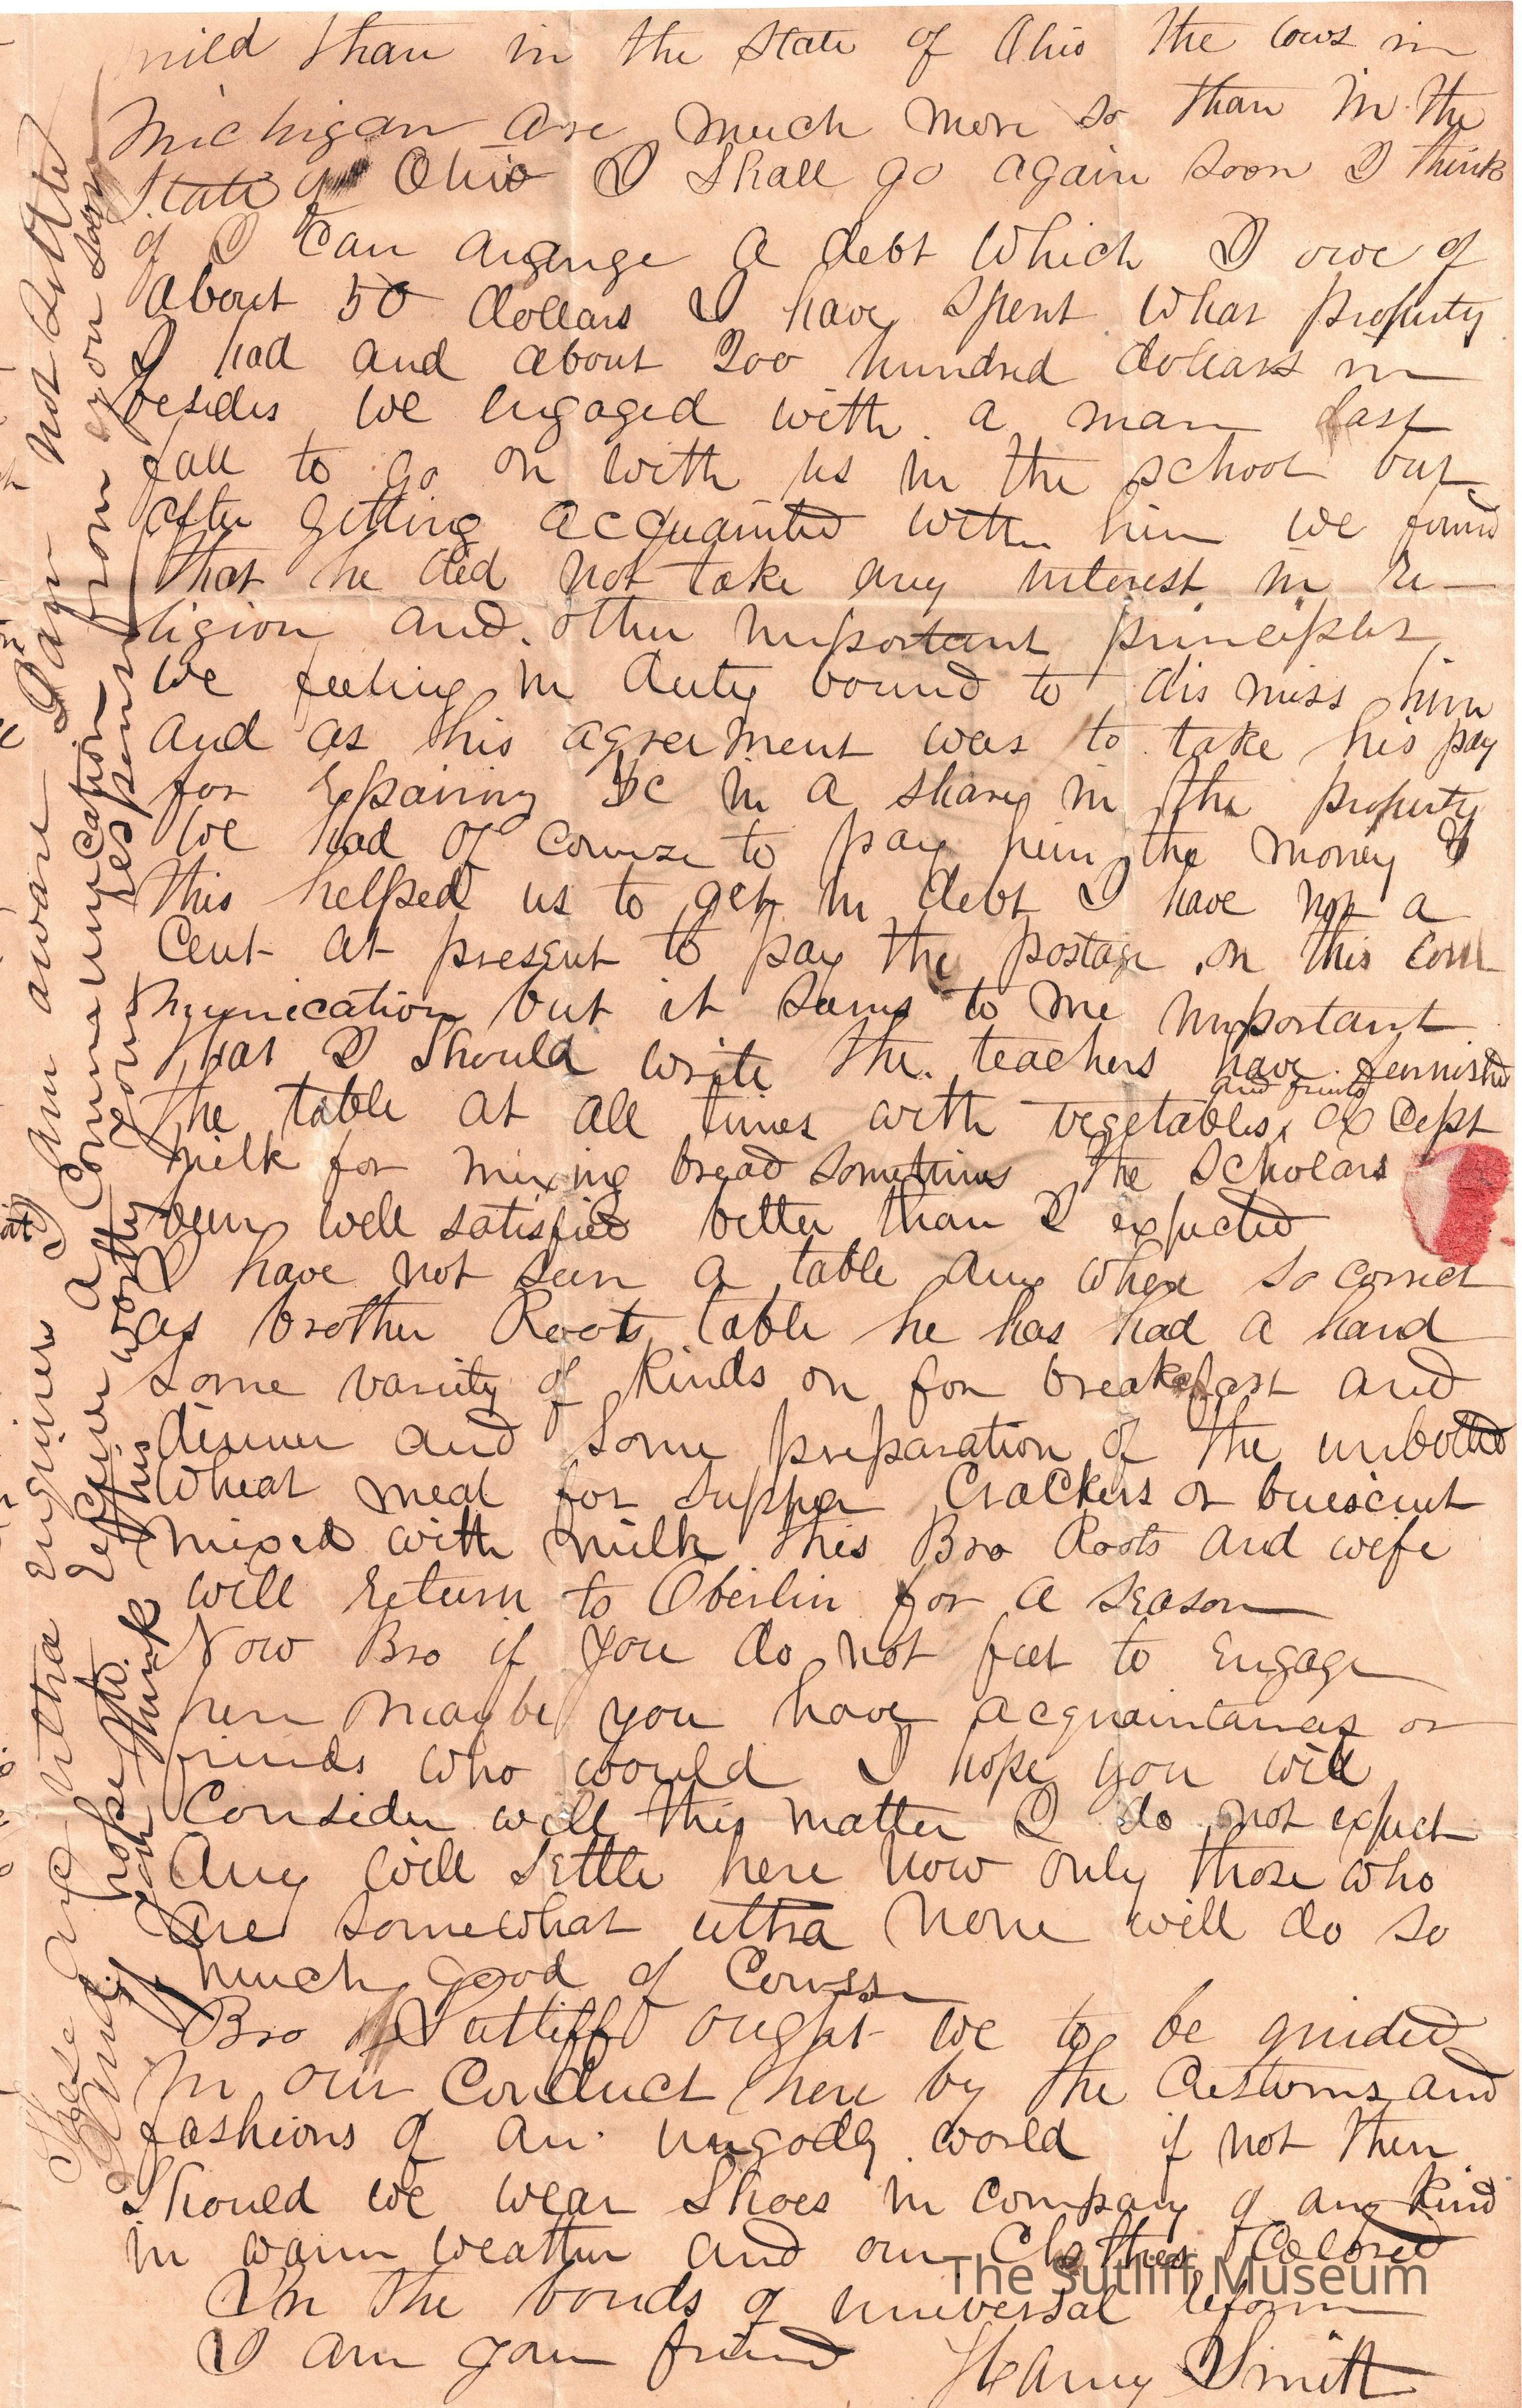 mild than in the State of Ohio The cows in
Michigan are much more so than in the
State of Ohio I Shall go again soon I think
if I Can arange a debt Which I owe of
about 50 dollars I have Spent What property
I had and about 200 hundred dollars in
besides We engaged with a man last
fall to go on with us in the school but
after getting accquainted with him we found
that he did not take any interest in re-
ligion and other important principles
We feeling in duty bound to dis miss him
and as his agreement was to take his pay
for repairing &c in a share in the property
We had of course to pay him the money &
this helped us to get in debt I have not a
Cent at present to pay the postage on this com
munication but it Seems to me important
that I Should write the teachers have furnished
and fruits
the table at all times with vegetables, except
milk for mixing bread sometimes The Scholars
been well satisfied better than I expected
I have not seen a table any where so correct
as brother Roots table he has had a hand
some variety of kinds on for breakfast and
dinner and some preparation of the unbolted
Wheat meal for supper Crackers or buiscuit
mixed with milk this Bro Roots and wife
will return to Oberlin for a season
Now Bro if you do not feel to engage
here maybe you have acquaintances or
friends who would I hope you will
Consider well this matter I do not expect
Any will settle here now only those who
are somewhat ultra none will do so
much good of Course
Bro Sutliff ought we to be guided
in our Conduct here by the Customs and
fashions of an ungodly world if not then
Should we wear Shoes in company of any kind
in warm weather and our Clothes Colored
In the bonds of universal reform
I am your friend Harvy Smith
These are ultra enquiries I am aware I am not ultra
hope to receive a Communication from you soon
if you think this worthy your
The Sutliff Museum